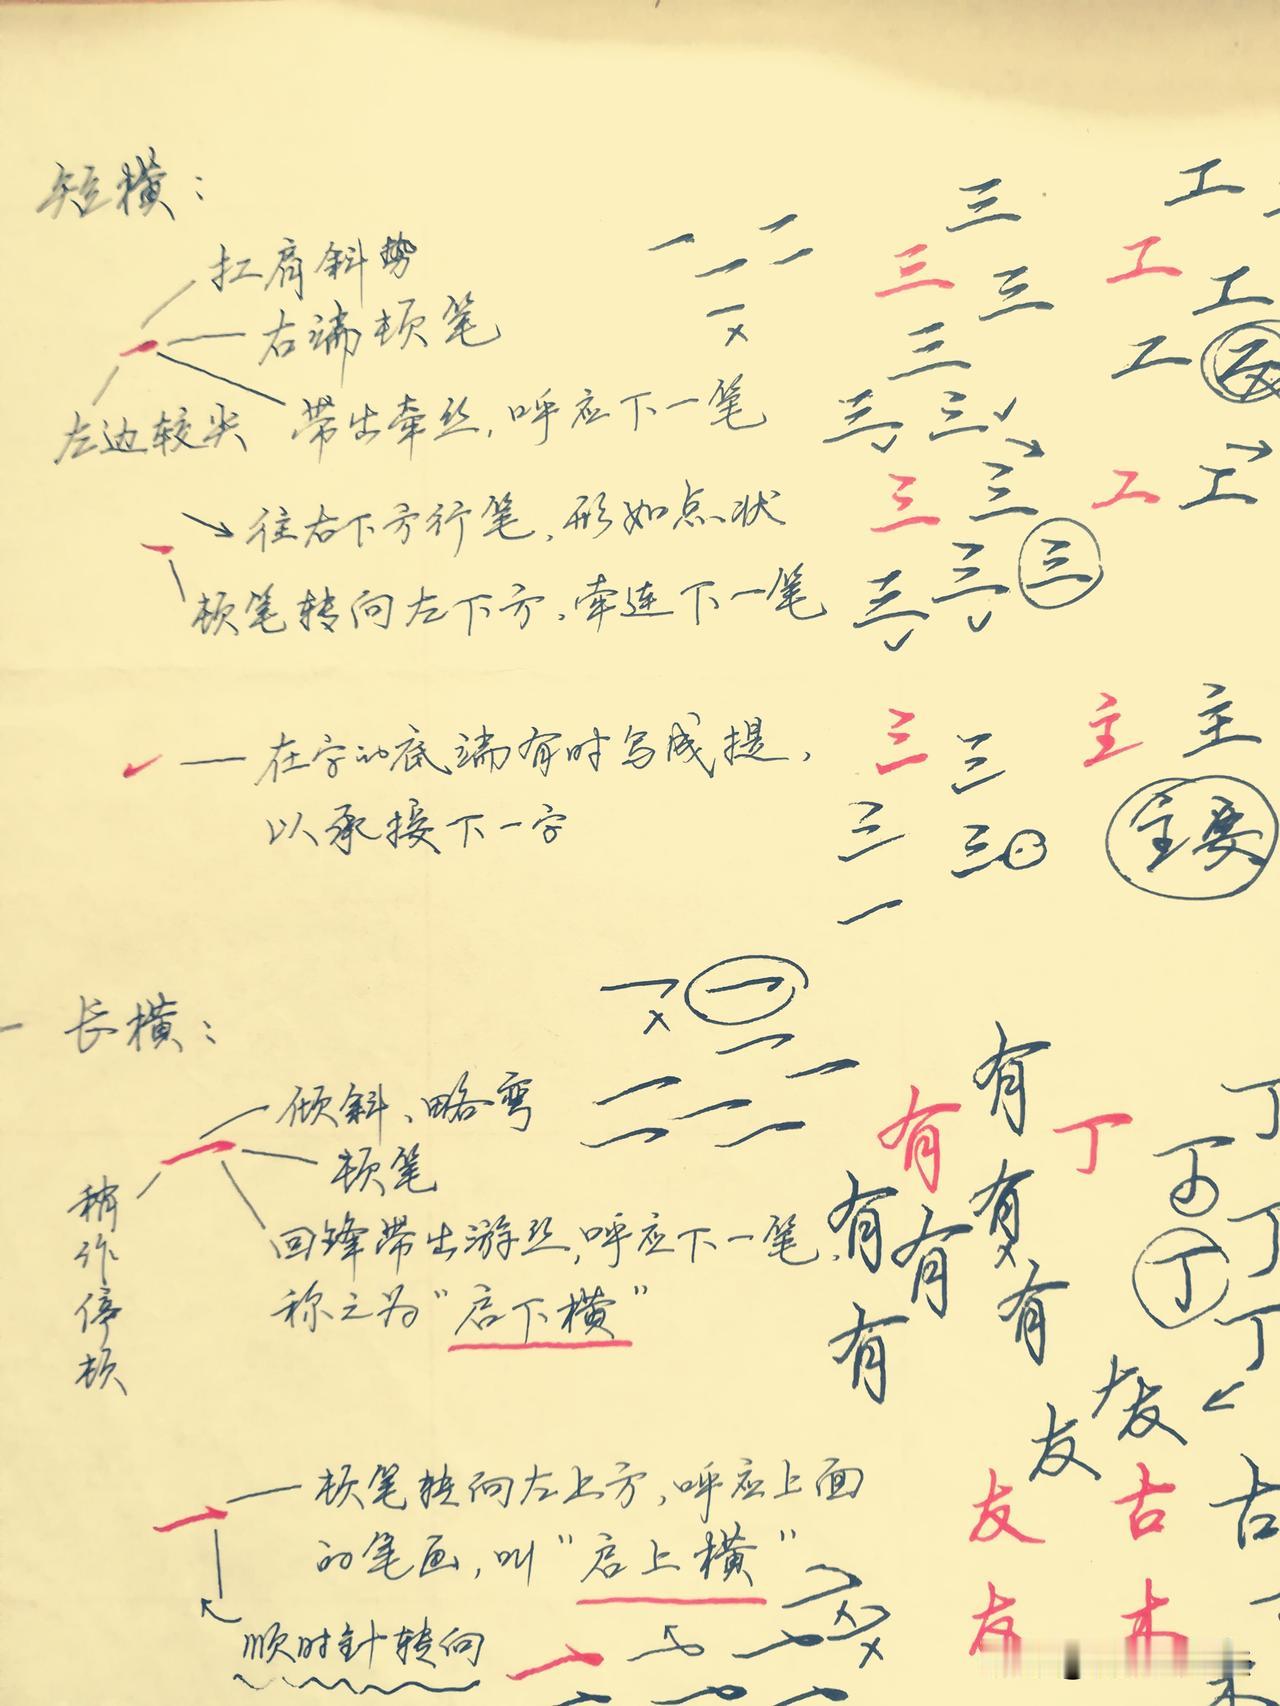 短横：
扛肩斜势
右端顿笔
左边较尖
带出牵丝，呼应下一笔
往右下方行笔，形如点状
顿笔转向左下方，牵连下一笔
在字的底端有时写成提，
以承接下一字
长横：
倾斜、略弯
顿笔
稍作停顿
回锋带出游丝，呼应下一笔，
称之为“启下横”
顿笔转向左上方，呼应上面
的笔画，叫“启上横”
顺时针转向
三 工
三 工
三 工
三 工
三 三
三 三 工 工
三 三 三
三 主 主
三 主要
三 三
一
一 一
二 二
有
有 丁
有 有 有
有 有 丁
友 友
友 古 古
友 木 木